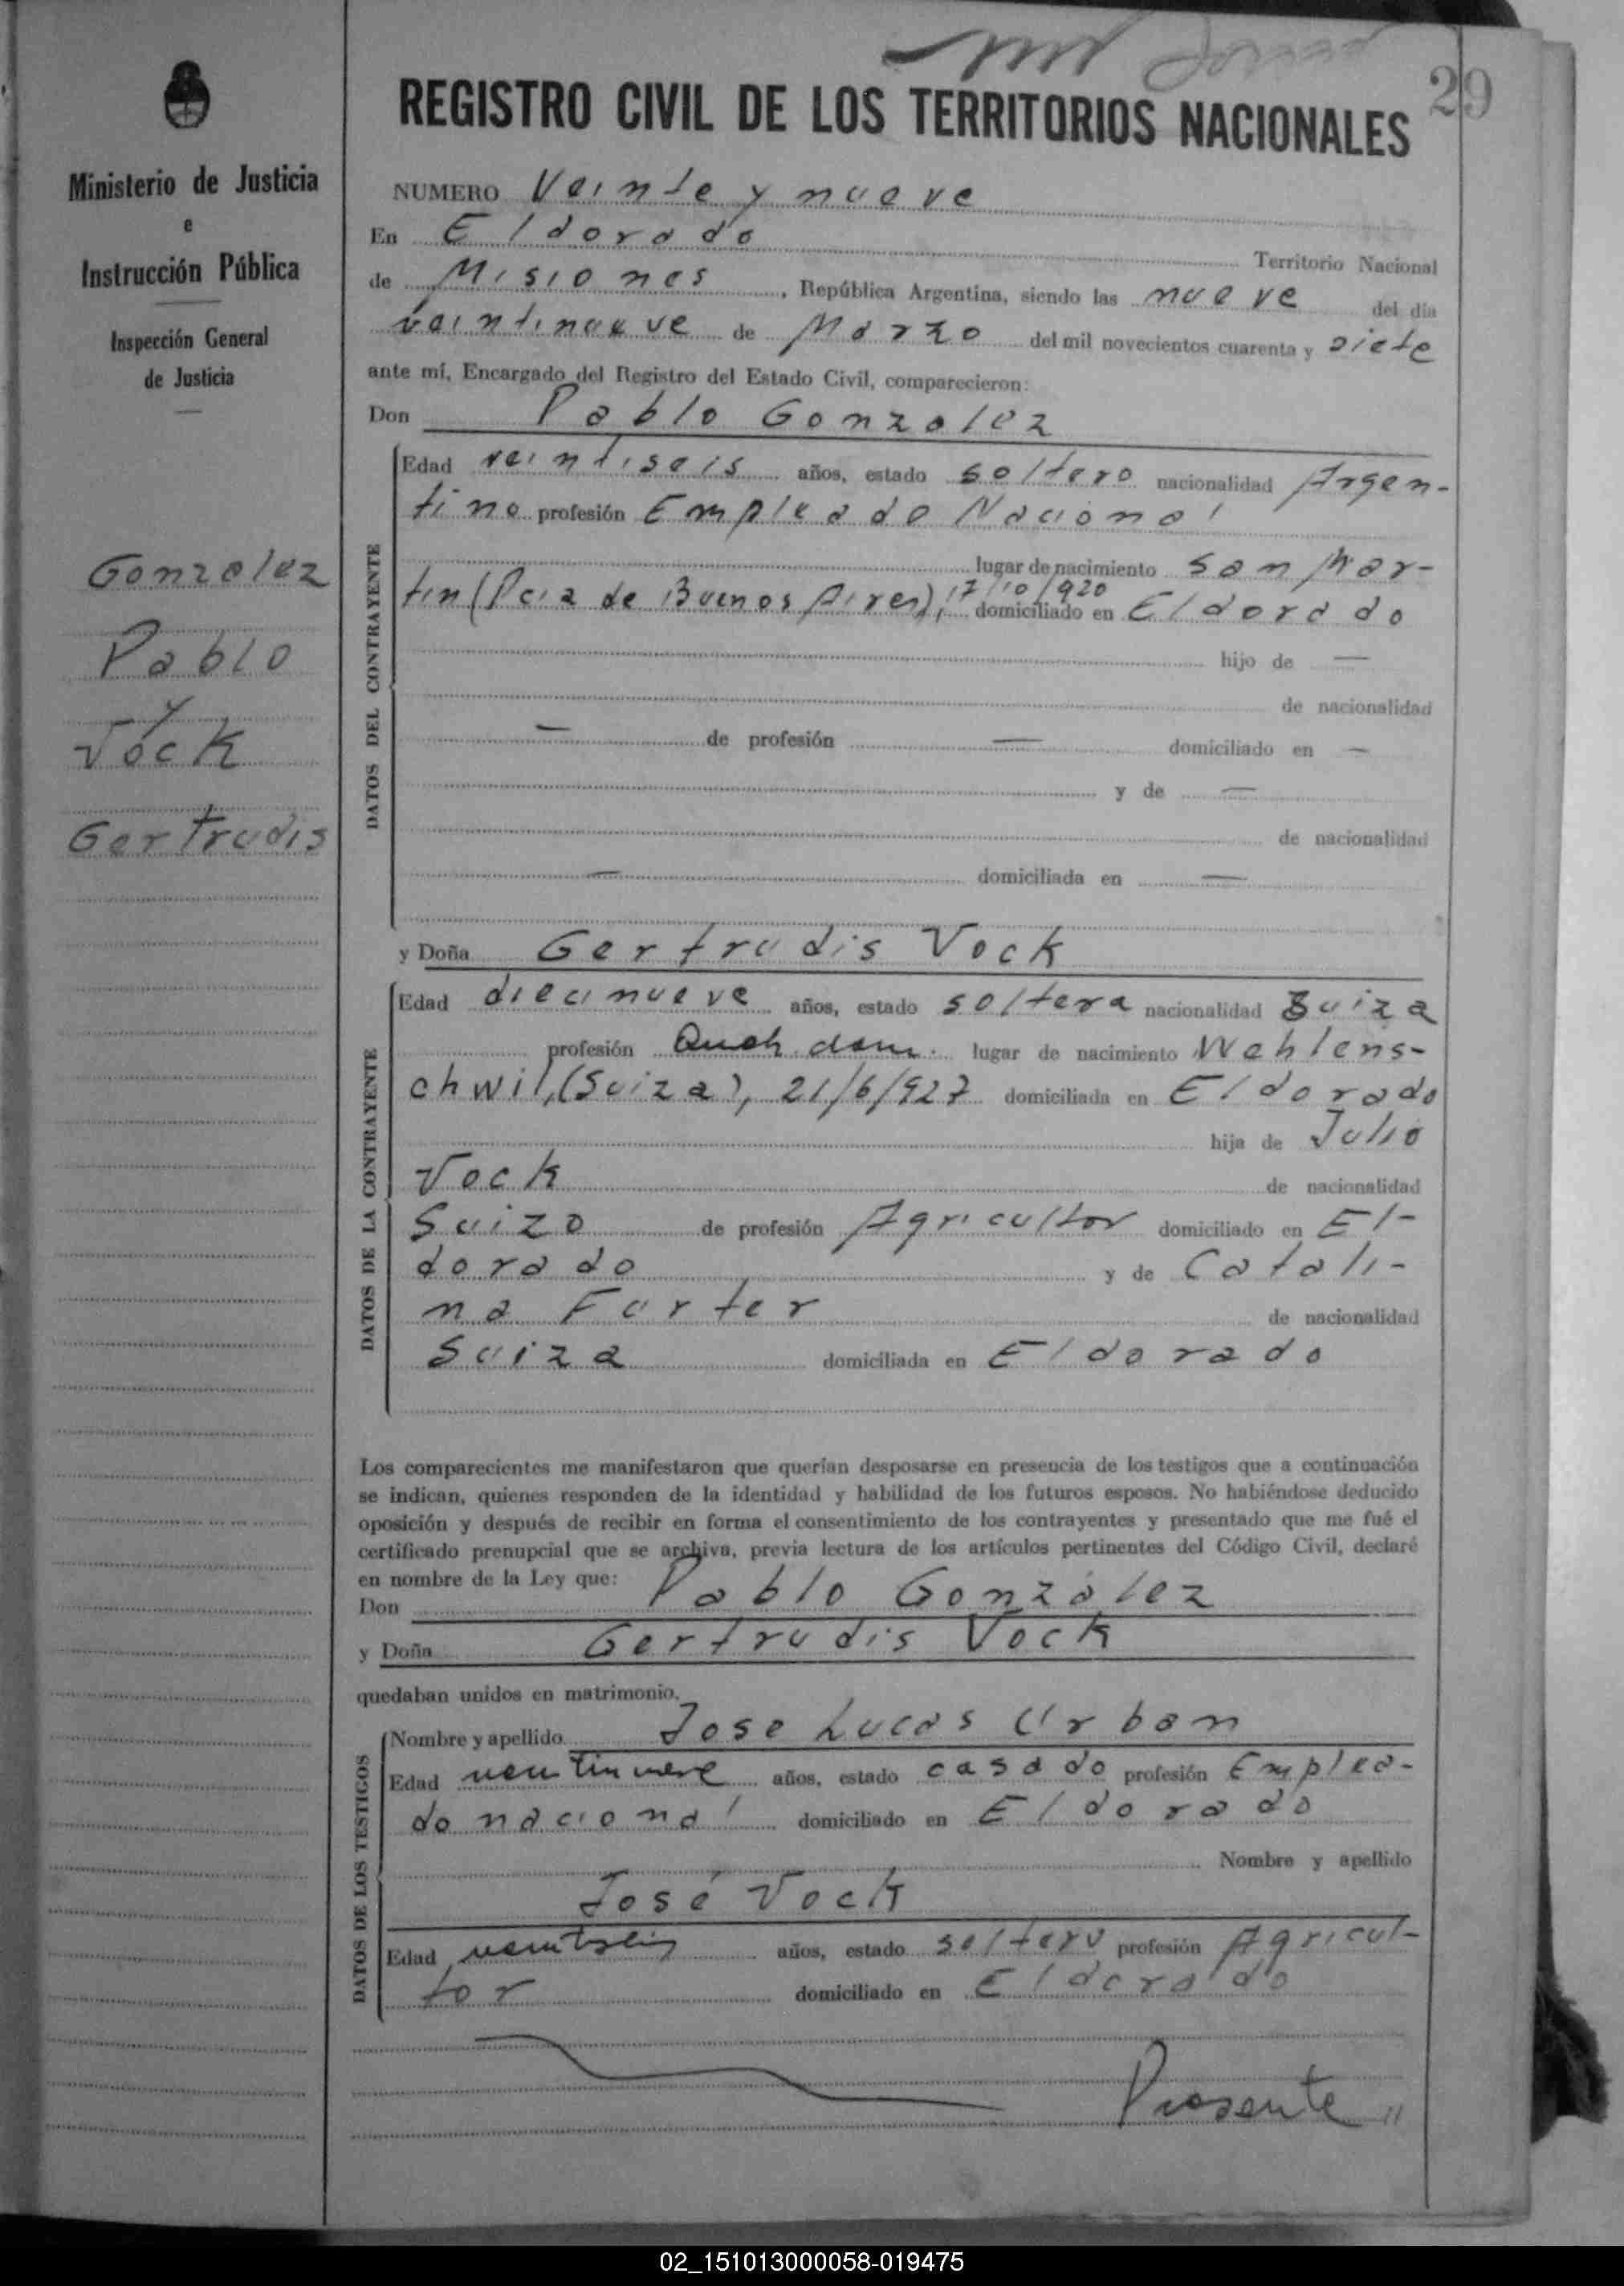 29
REGISTRO CIVIL DE LOS TERRITORIOS NACIONALES
Ministerio de Justicia
e
Instrucción Pública
Inspección General
de Justicia
Gonzalez
Pablo
y
Vock
Gertrudis
NUMERO Veinte y nueve
En Eldorado Territorio Nacional
de Misiones, República Argentina, siendo las nueve del día
veintinueve de Marzo del mil novecientos cuarenta y siete
ante mí, Encargado del Registro del Estado Civil, comparecieron:
Don Pablo Gonzalez
DATOS DEL CONTRAYENTE
Edad veintiseis años, estado soltero nacionalidad Argen-
tino profesión Empleado Nacional
lugar de nacimiento San Mar-
tin (Pcia de Buenos Aires), 17/10/920 domiciliado en Eldorado
hijo de —
de nacionalidad
— de profesión — domiciliado en —
y de —
de nacionalidad
— domiciliada en —
y Doña Gertrudis Vock
DATOS DE LA CONTRAYENTE
Edad diecinueve años, estado soltera nacionalidad Suiza
profesión Queh. dom. lugar de nacimiento Wohlens-
chwil, (Suiza), 21/6/927 domiciliada en Eldorado
hija de Julio
Vock de nacionalidad
Suizo de profesión Agricultor domiciliado en El-
dorado y de Catali-
na Furter de nacionalidad
Suiza domiciliada en Eldorado
Los comparecientes me manifestaron que querían desposarse en presencia de los testigos que a continuación
se indican, quienes responden de la identidad y habilidad de los futuros esposos. No habiéndose deducido
oposición y después de recibir en forma el consentimiento de los contrayentes y presentado que me fué el
certificado prenupcial que se archiva, previa lectura de los artículos pertinentes del Código Civil, declaré
en nombre de la Ley que:
Don Pablo Gonzalez
y Doña Gertrudis Vock
quedaban unidos en matrimonio.
DATOS DE LOS TESTIGOS
Nombre y apellido Jose Lucas Urban
Edad veintinueve años, estado casado profesión Emplea-
do nacional domiciliado en Eldorado
Nombre y apellido
José Vock
Edad veintiseis años, estado soltero profesión Agricul-
tor domiciliado en Eldorado
Presente //
02_151013000058-019475